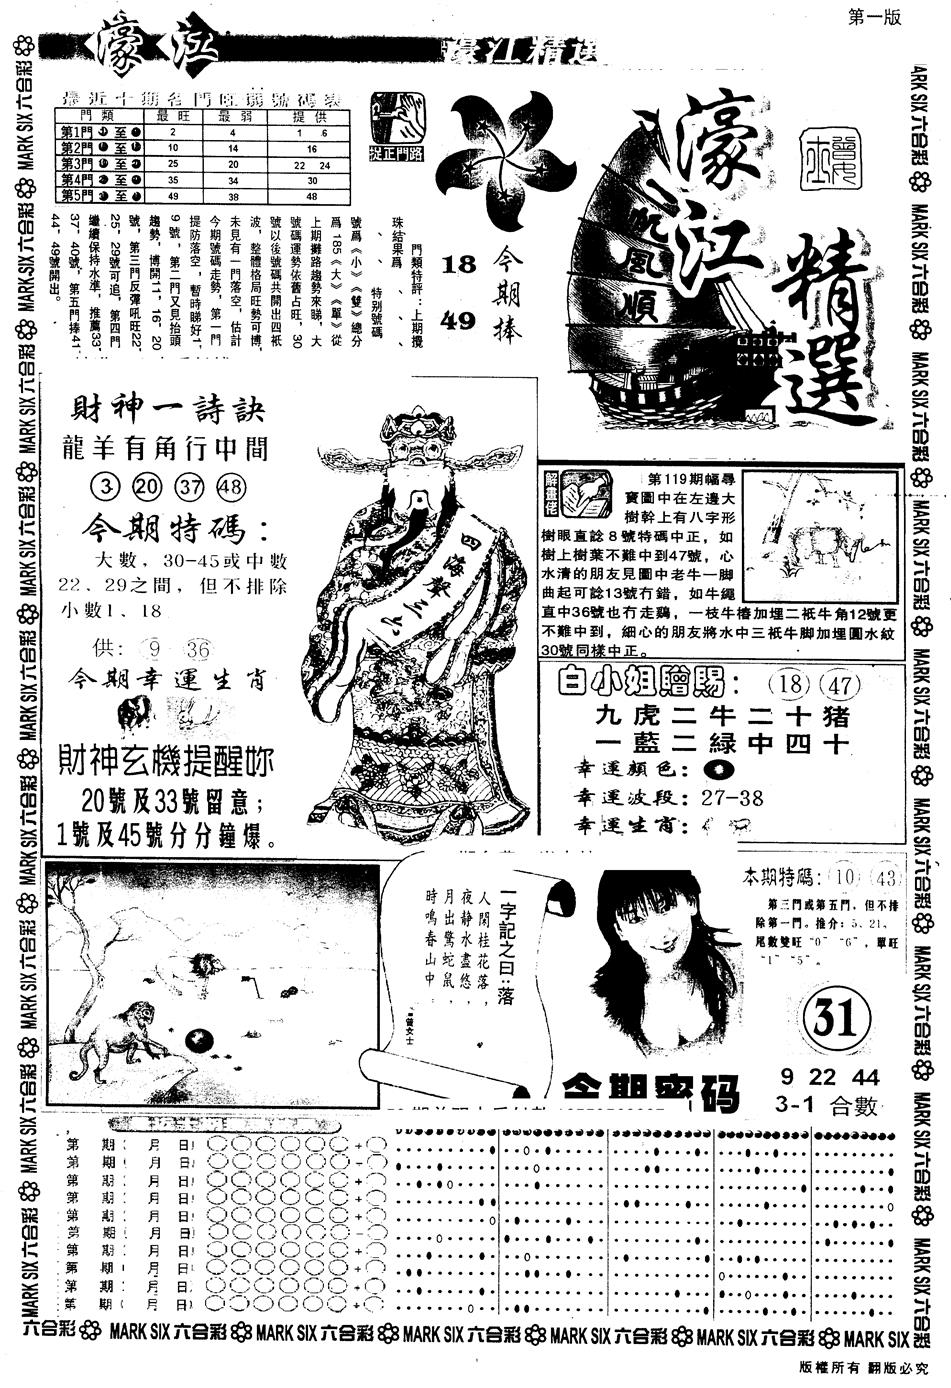 第一版
濠江
濠江精選
最近十期各門旺弱號碼表
門類 最旺 最弱 提供
第1門 至 2 4 1 6
第2門 至 10 14 16
第3門 至 25 20 22 24
第4門 至 35 34 30
第5門 至 49 38 48
捉正門路
門類特評：上期攪
珠結果爲、、、、
、、特別號碼
號爲《小》《雙》總分
爲185《大》《單》從
上期攤路趨勢來睇，大
號碼運勢依舊占旺，30
號以後號碼共開出四衹
波，整體格局旺勢可博，
未見有一門落空，估計
今期號碼走勢，第一門
提防落空，暫時睇好1、
9號，第二門又見抬頭
趨勢，博開11、16、20
號，第三門反彈吼旺22、
25、29號可追，第四門
繼續保持水準，推薦33、
37、40號，第五門捧41、
44、49號開出。
今期捧
18
49
濠江
精選
帆風順
財神一詩訣
龍羊有角行中間
3 20 37 48
今期特碼：
大數，30-45或中數
22、29之間，但不排除
小數1、18
供：9 36
今期幸運生肖
財神玄機提醒妳
20號及33號留意；
1號及45號分分鐘爆。
四海聲
解畫佬
第119期幅尋
寶圖中在左邊大
樹幹上有八字形
樹眼直諗8號特碼中正，如
樹上樹葉不難中到47號，心
水清的朋友見圖中老牛一脚
曲起可諗13號冇錯，如牛繩
直中36號也冇走鷄，一枝牛樁加埋二衹牛角12號更
不難中到，細心的朋友將水中三衹牛脚加埋圓水紋
30號同樣中正。
白小姐贈賜：18 47
九虎二牛二十猪
一藍二緑中四十
幸運顏色：
幸運波段：27-38
幸運生肖：
一字記之曰：落
人閑桂花落，
夜静水盡悠，
月出驚蛇鼠，
時鳴春山中。
曾女士
本期特碼：10 43
第三門或第五門，但不排
除第一門。推介：5、21、
尾數雙旺“0”“6”，單旺
“1”“5”。
31
今期密码
9 22 44
3-1 合數
第 期 月 日
第 期 月 日
第 期 月 日
第 期 月 日
第 期 月 日
第 期 月 日
第 期 月 日
第 期 月 日
第 期 月 日
第 期 月 日
MARK SIX 六合彩
六合彩 MARK SIX 六合彩 MARK SIX 六合彩 MARK SIX 六合彩 MARK SIX 六合彩 MARK SIX 六合彩 MARK SIX
版權所有 翻版必究